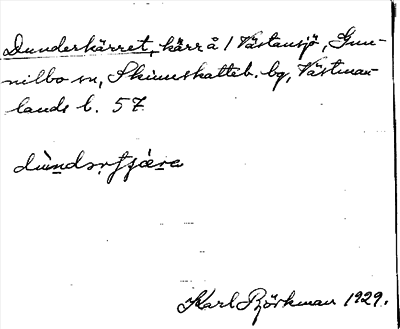 Dunderkärret, kärr å / Västansjö, Gun-
nilbo sn, Skinnskatteb. bg, Västman-
lands l. 57
dùndərʃæ̀ra
Karl Björkman 1929.